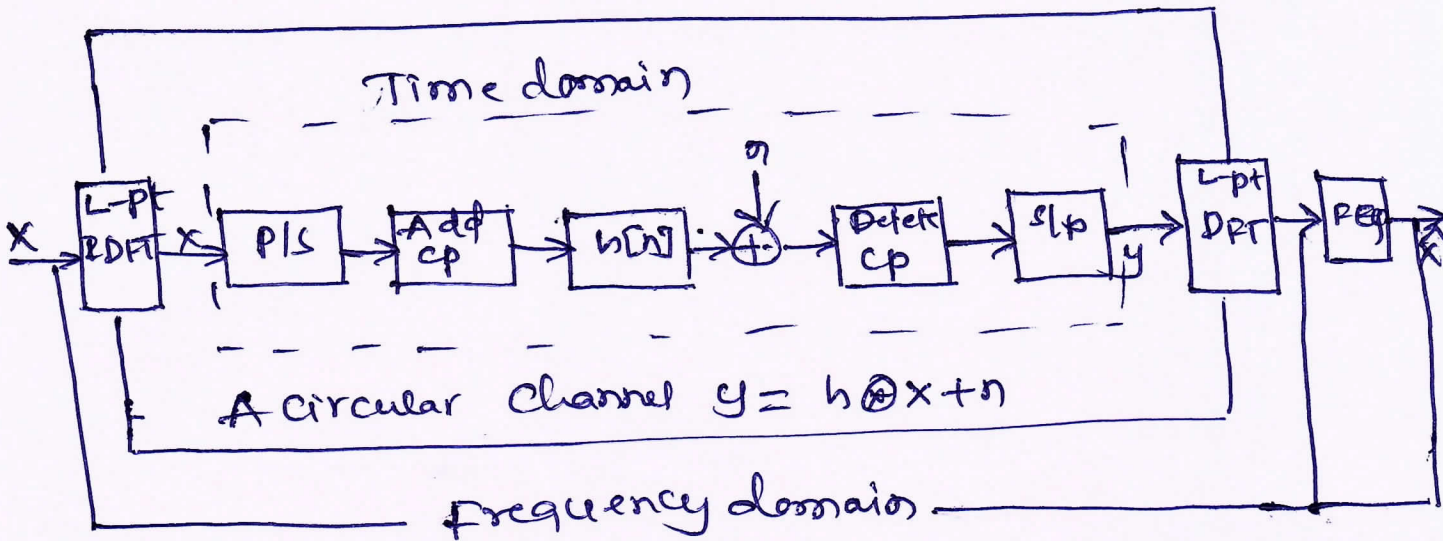 Time domain
n
X
L-pt
IDFT
x
P/S
Add
CP
h[n]
+
Delete
CP
S/P
y
L-pt
DFT
FEQ
X̂
A circular channel y = h⊗x+n
Frequency domain